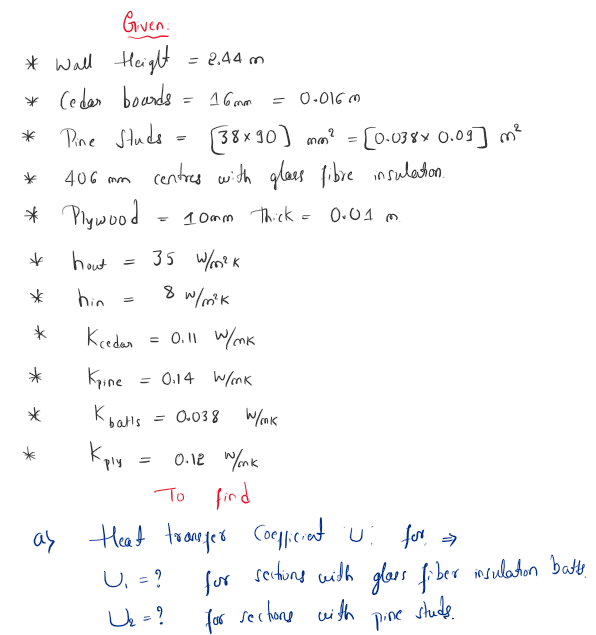 Given:
* Wall Height = 2.44 m
* Cedar boards = 16mm = 0.016 m
* Pine Studs = [38 x 90] mm² = [0.038 x 0.09] m²
* 406 mm centres with glass fibre insulation.
* Plywood = 10mm Thick = 0.01 m
* hout = 35 W/m²K
* hin = 8 W/m²K
* Kcedar = 0.11 W/mK
* Kpine = 0.14 W/mK
* Kbatts = 0.038 W/mK
* Kply = 0.12 W/mK
To find
a) Heat transfer Coefficient U: for ⇒
U₁ = ? for sections with glass fiber insulation batts.
U₂ = ? for sections with pine studs.